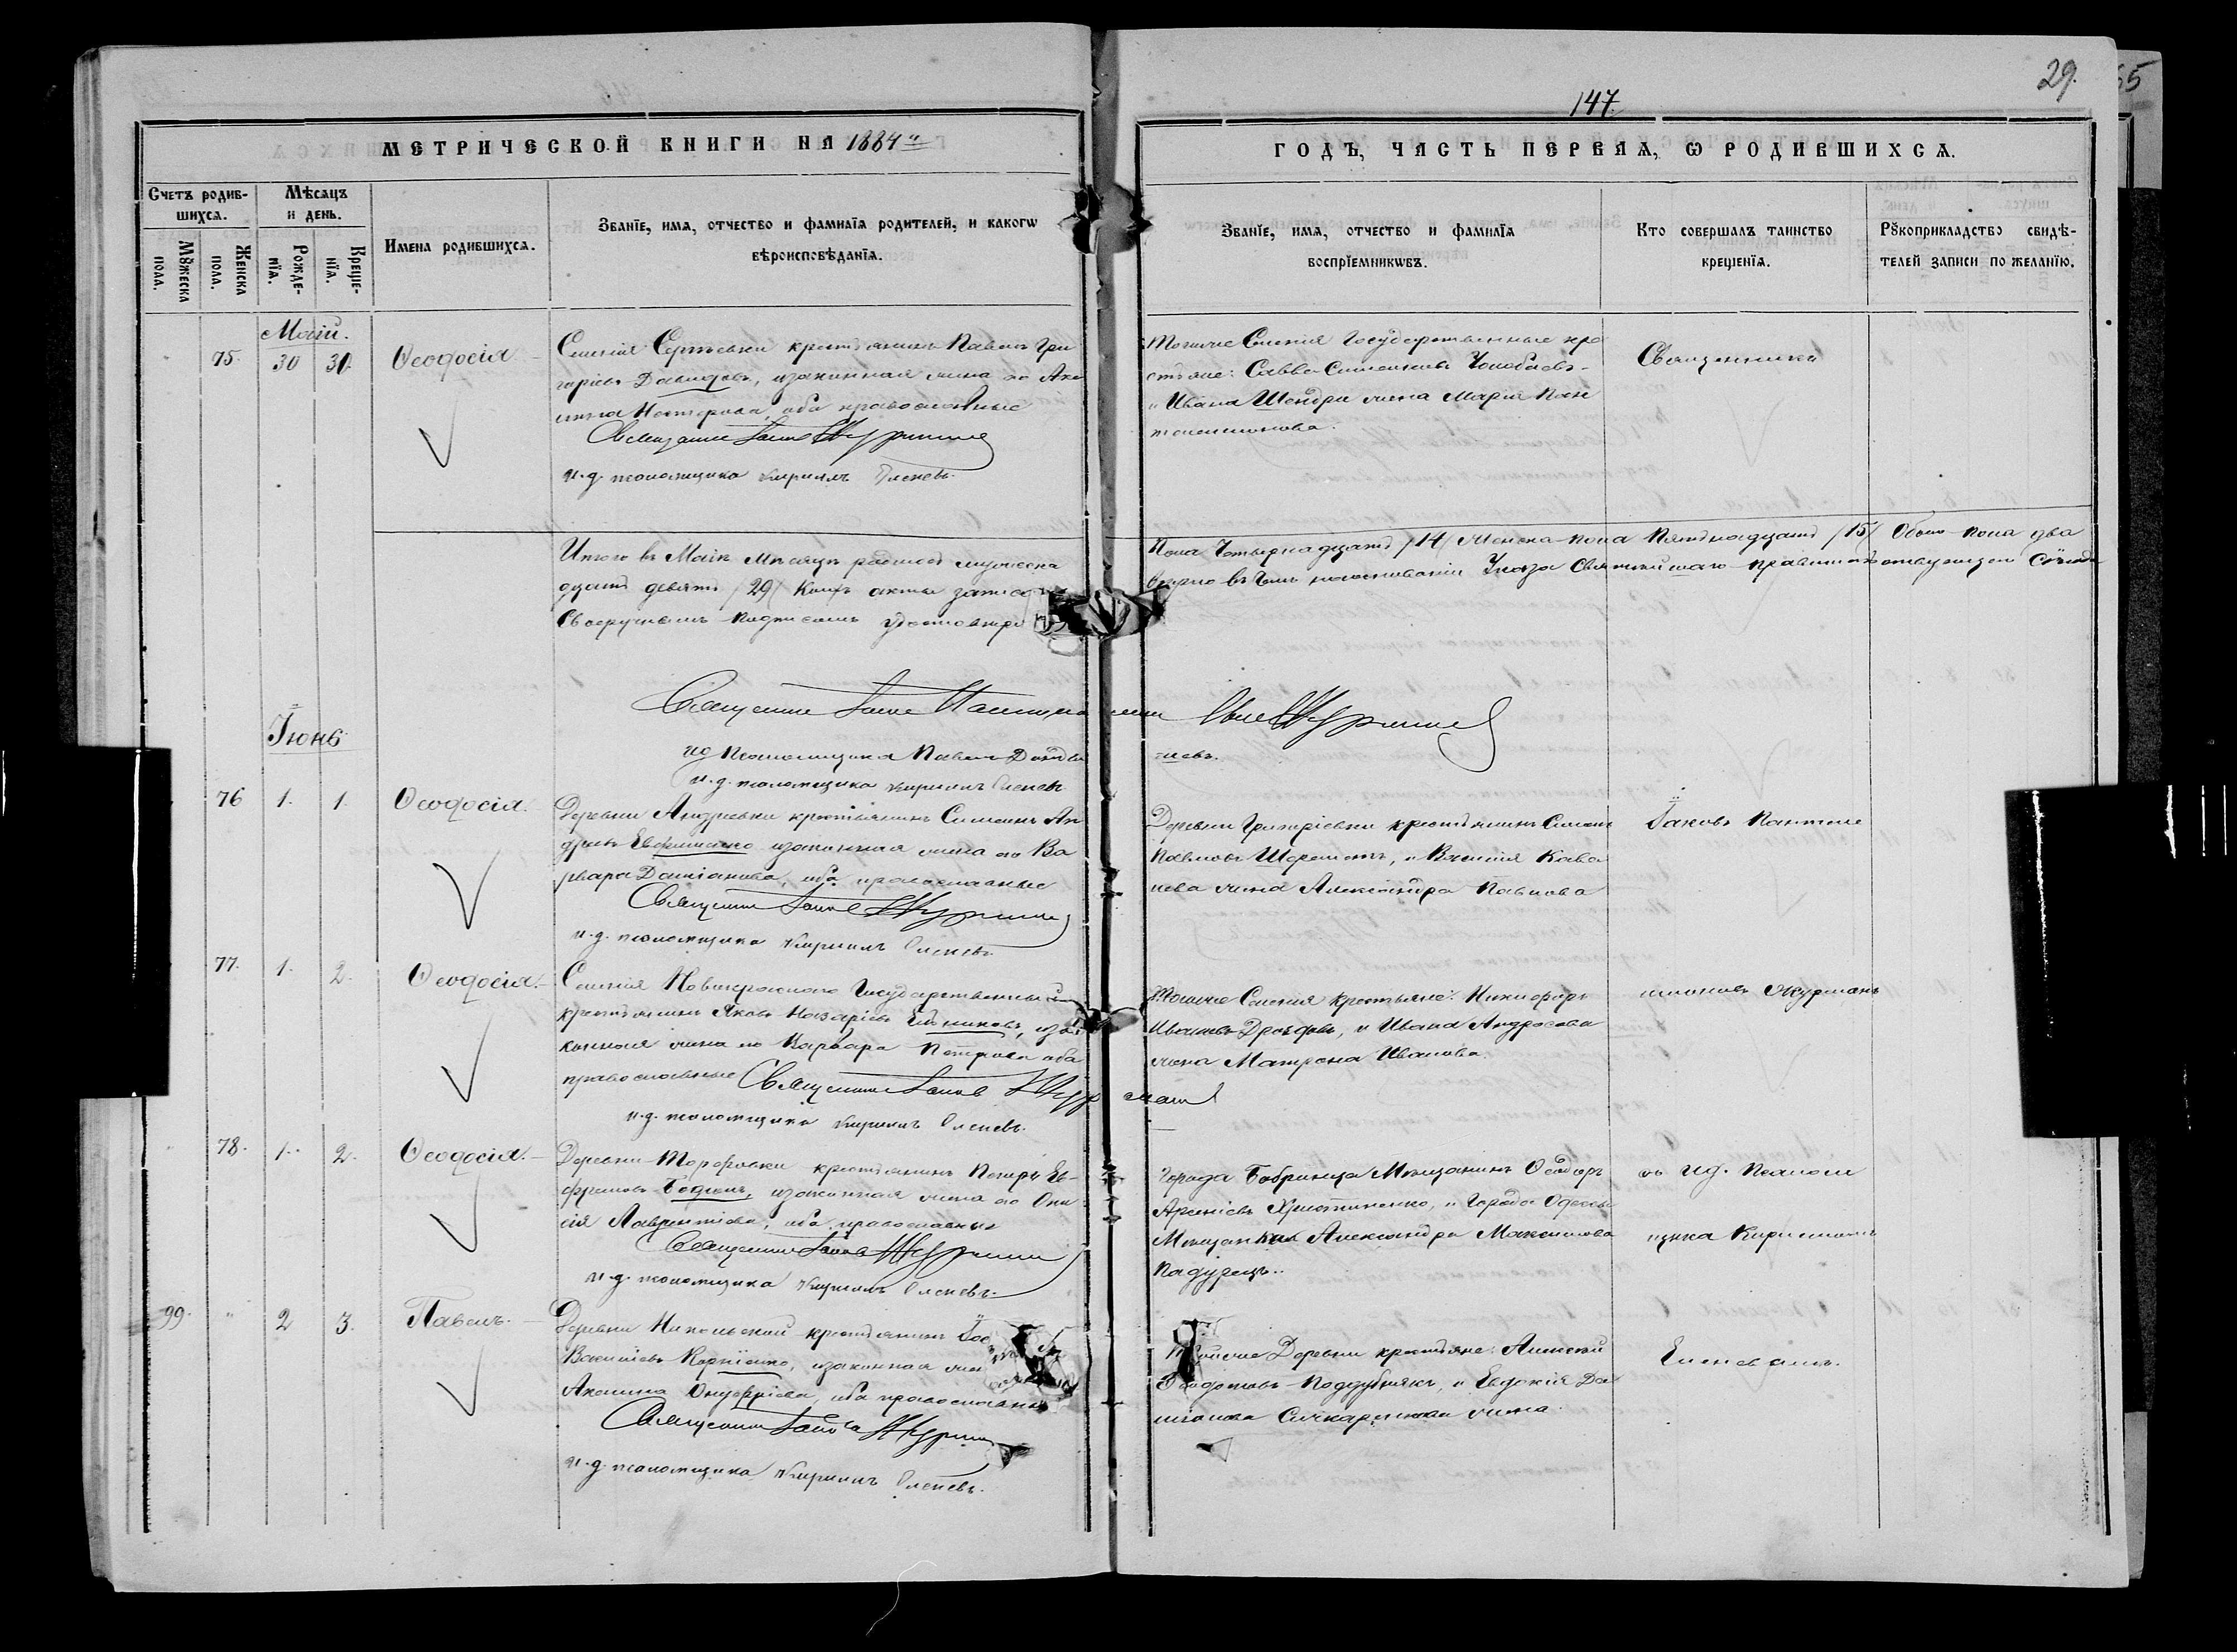 29.
147.
МЕТРИЧЕСКОЙ КНИГИ НА 1884й
ГОДЪ, ЧАСТЬ ПЕРВАЯ, Ѡ РОДИВШИХСѦ.
Счетъ родив-
шихсѧ.
Мѣсѧцъ
и день.
Мꙋжеска
пола.
Женска
пола.
Рожде-
нїѧ.
Креще-
нїѧ.
Имена родившихсѧ.
Званїе, имѧ, отчество и фамилїѧ родителей, и какогѡ
вѣроисповѣданїѧ.
Званїе, имѧ, отчество и фамилїѧ
воспрїемникѡвъ.
Кто совершалъ таинство
крещенїѧ.
Рꙋкоприкладство свидѣ-
телей записи по желанїю.
Май.
75. 30 30. Ѳеодосія
Селенія Сергѣевки крестьянинъ Павелъ Гри
горіевъ Давидовъ, и законная жена его Аку
лина Нестерова, оба православные
Священникъ Іаковъ Журманъ
и. д. псаломщика Кириллъ Еленевъ.
Того же Селенія Государственные кре
стьяне: Савва Симеоновъ
и Ивана Шендри жена Марія Пан
телеимонова.
Священникъ
Итого въ Маѣ мѣсяцѣ родилось мужеска
пола Четырнадцать /14/ Женска пола Пятнадцать /15/ Обоего пола два
дцать девять /29/ Коихъ акты записа
вѣрно въ томъ на основаніи Указа Святѣйшаго Правительствующаго Сѵнода
Своеручнымъ подписомъ удостовѣря
Священникъ Іаковъ Журманъ
ид псаломщика Павелъ
и. д. псаломщика Кириллъ Еленевъ
Іюнь
76 1. 1. Ѳеодосія.
Деревни Андреевки крестьянинъ Симеонъ Ан
дреевъ и законная жена его Ва
рвара Даміанова, оба православные
Священникъ Іаковъ Журманъ
и. д. псаломщика Кириллъ Еленевъ
Деревни Григоріевки крестьянинъ Симеонъ
Павловъ Шереметъ, и Василія Кова
лева жена Александра Павлова
Іаковъ Пантеле
77. 1. 2. Ѳеодосія.
Селенія Новокрасного Государственный
крестьянинъ Яковъ Назаріевъ и за
конная жена его Варвара Петрова оба
православные Священникъ Іаковъ Журманъ
и. д. псаломщика Кириллъ Еленевъ.
Того же Селенія крестьяне: Никифоръ
Ивановъ Дроздовъ, и Ивана Андросова
жена Матрона Иванова.
имоновъ Журманъ
78. 1. 2. Ѳеодосія.
Деревни крестьянинъ Петръ Ев-
фремовъ и законная жена его Они
сія Лаврентіева, оба православные
Священникъ Іаковъ Журманъ
и. д. псаломщика Кириллъ Еленевъ.
Города Бобринца Мѣщанинъ Ѳеодоръ
Арсеніевъ Христиненко, и Города Одессы
Мѣщанка Александра Максимова
Падурецъ.
съ и д. Псалом
щика Кирилломъ
99. " 2 3. Павелъ.
Деревни Никольской крестьянинъ
Василіевъ Корніенко, и законная жена
Акилина Онуфріева, оба православные
Священникъ Іаковъ Журманъ
и. д. псаломщика Кириллъ Еленевъ.
Той же Деревни крестьяне: Алексѣй
Ѳеодотовъ Поддубнякъ, и Евдокія Да
міанова Сичкаренкова жена.
Еленевымъ.